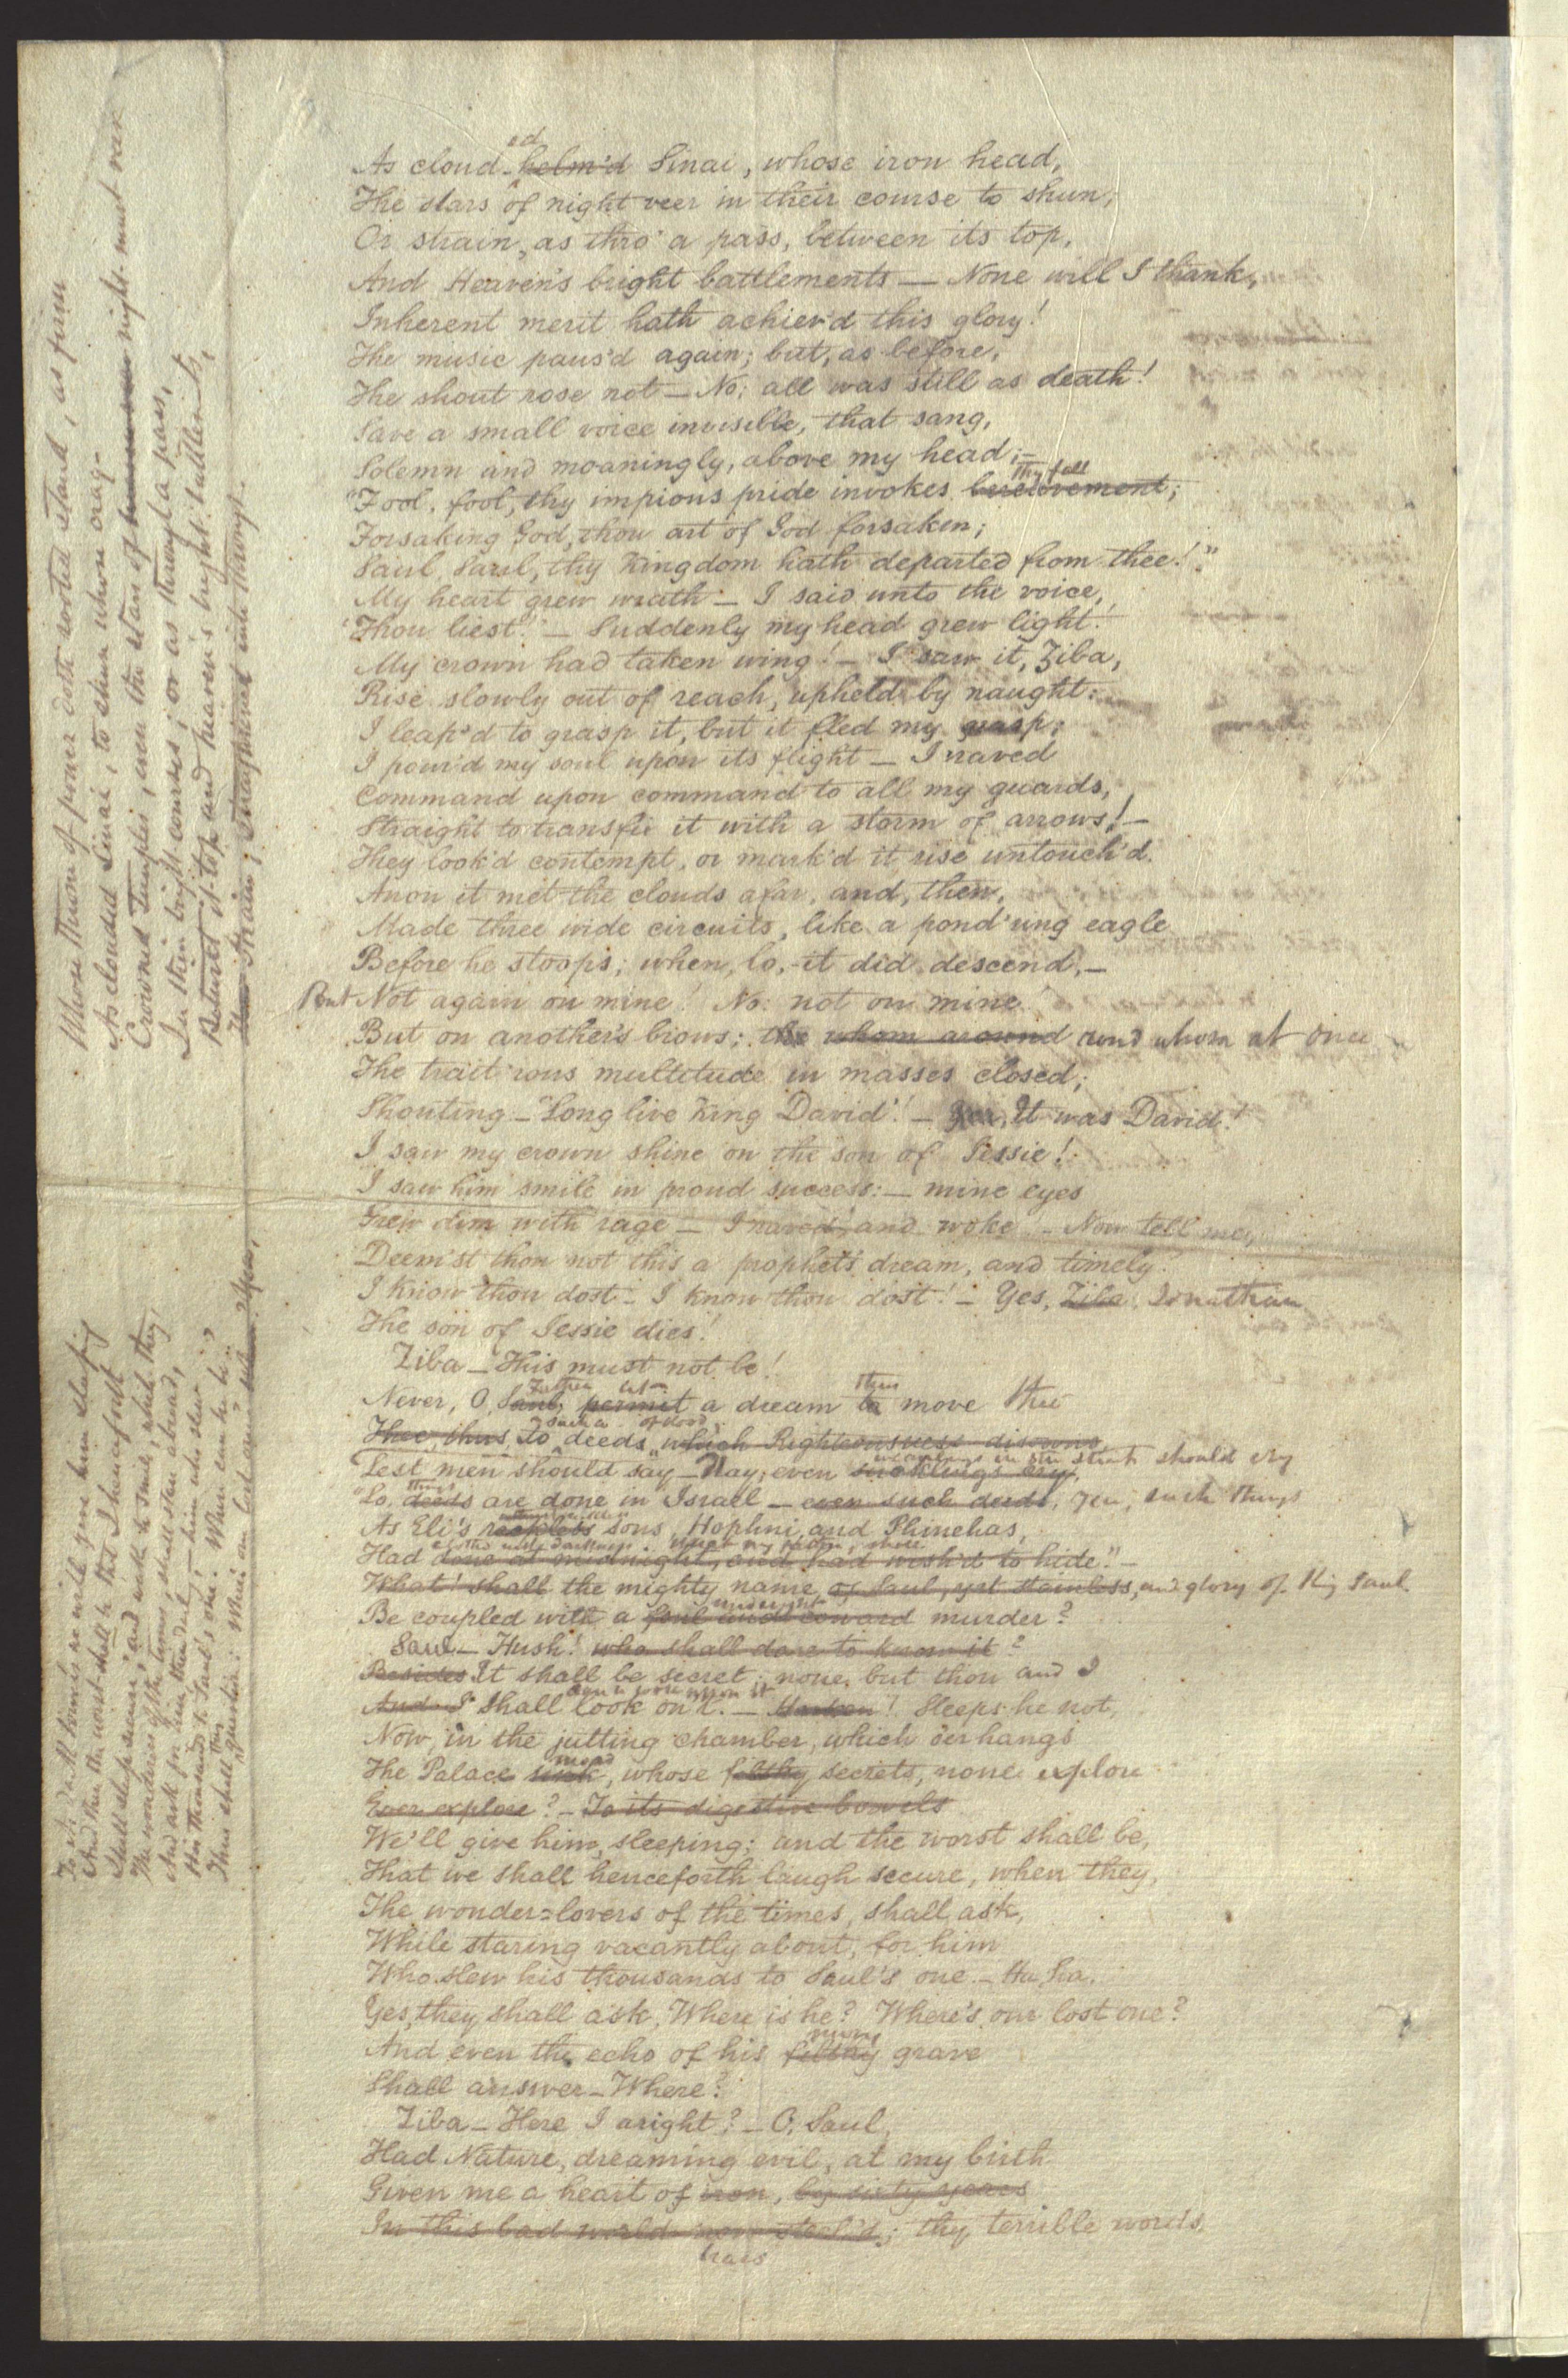 As cloud-helm'd Sinai, whose iron head,
ed
The stars of night veer in their course to shun,
Or strain, as thro' a pass, between its top,
And Heaven's bright battlements — None will I thank,
Inherent merit hath achiev'd this glory!
The music paus'd again; but, as before,
The shout rose not — No; all was still as death!
Save a small voice invisible, that sang,
Solemn and moaningly, above my head;—
"Fool, fool, thy impious pride invokes bereavement;
thy fall
Forsaking God, thou art of God forsaken;
Saul, Saul, thy Kingdom hath departed from thee!"
My heart grew wrath — I said unto the voice,
'Thou liest!' — Suddenly my head grew light!
My crown had taken wing! — I saw it, Ziba,
Rise slowly out of reach, upheld by naught:
I leap'd to grasp it, but it fled my grasp;
I pour'd my soul upon its flight — I raved
Command upon command to all my guards,
Straight to transfix it with a storm of arrows! —
They look'd contempt, or mark'd it rise untouch'd.
Anon it met the clouds afar, and, then,
Made three wide circuits, like a pond'ring eagle
Before he stoops; when, lo, it did descend, —
But Not again on mine! No: not on mine!
But on another's brows; whom around round whom at once
The trait'rous multitude in masses closed;
Shouting — "Long live King David"! — It was David!
I saw my crown shine on the son of Jessie!
I saw him smile in proud success: — mine eyes
Grew dim with rage — I raved, and woke! — Now tell me,
Deem'st thou not this a prophet's dream, and timely?
I know thou dost — I know thou dost! — Yes, Ziba Jonathan
The son of Jessie dies!
Ziba — This must not be!
Father let thus
Never, O, Saul, permit a dream to move thee
such a of blood;
Thee, thus, to deeds which Righteousness disowns,
Lest men should say — Nay, even sucklings cry,
in the streets should cry
things
"Lo, deeds are done in Israel — even such deeds, yea, such things
As Eli's reckless sons, Hophni, and Phinehas,
Had done at midnight, and had wish'd to hide." —
What! shall the mighty name of Saul, yet stainless, and glory of King Saul
midnight
Be coupled with a foul and coward murder?
Saul — Hush! who shall dare to know it?
Besides It shall be secret; none, but thou and I
And I Shall look on't. — Harken! Sleeps he not,
Now, in the jutting chamber, which o'erhangs
moad
The Palace sink, whose filthy secrets, none explore
Ever explore? — To its digestive bowels
We'll give him, sleeping; and the worst shall be,
That we shall henceforth laugh secure, when they,
The wonder=lovers of the times, shall ask,
While staring vacantly about, for him
Who slew his thousands to Saul's one. — Ha, ha.
Yes, they shall ask, Where is he? Where's our lost one?
And even the echo of his filthy grave
Shall answer — Where?
Ziba — Here I aright? — O, Saul,
Had Nature, dreaming evil, at my birth
Given me a heart of iron, by sixty years
In this bad world now steel'd; thy terrible words
Whose throne of power doth rooted stand, as firm
As clouded Sinai, to shun whose crag-
Crowned Temples, even the stars of night must veer
In their bright courses; or as through a pass,
Between its top and heaven's bright battlements,
Strain, straightened into throngs.
To its dark homes we will give him sleeping
And then the worst shall be that I henceforth
Shall sleep secure, and wake to smile, while they
The wonderers of the times, shall stare abroad,
And ask for him, their idol, — him who slew
His thousands to Saul's one. Where can he be?
Thus shall they question: Where's our lost one?